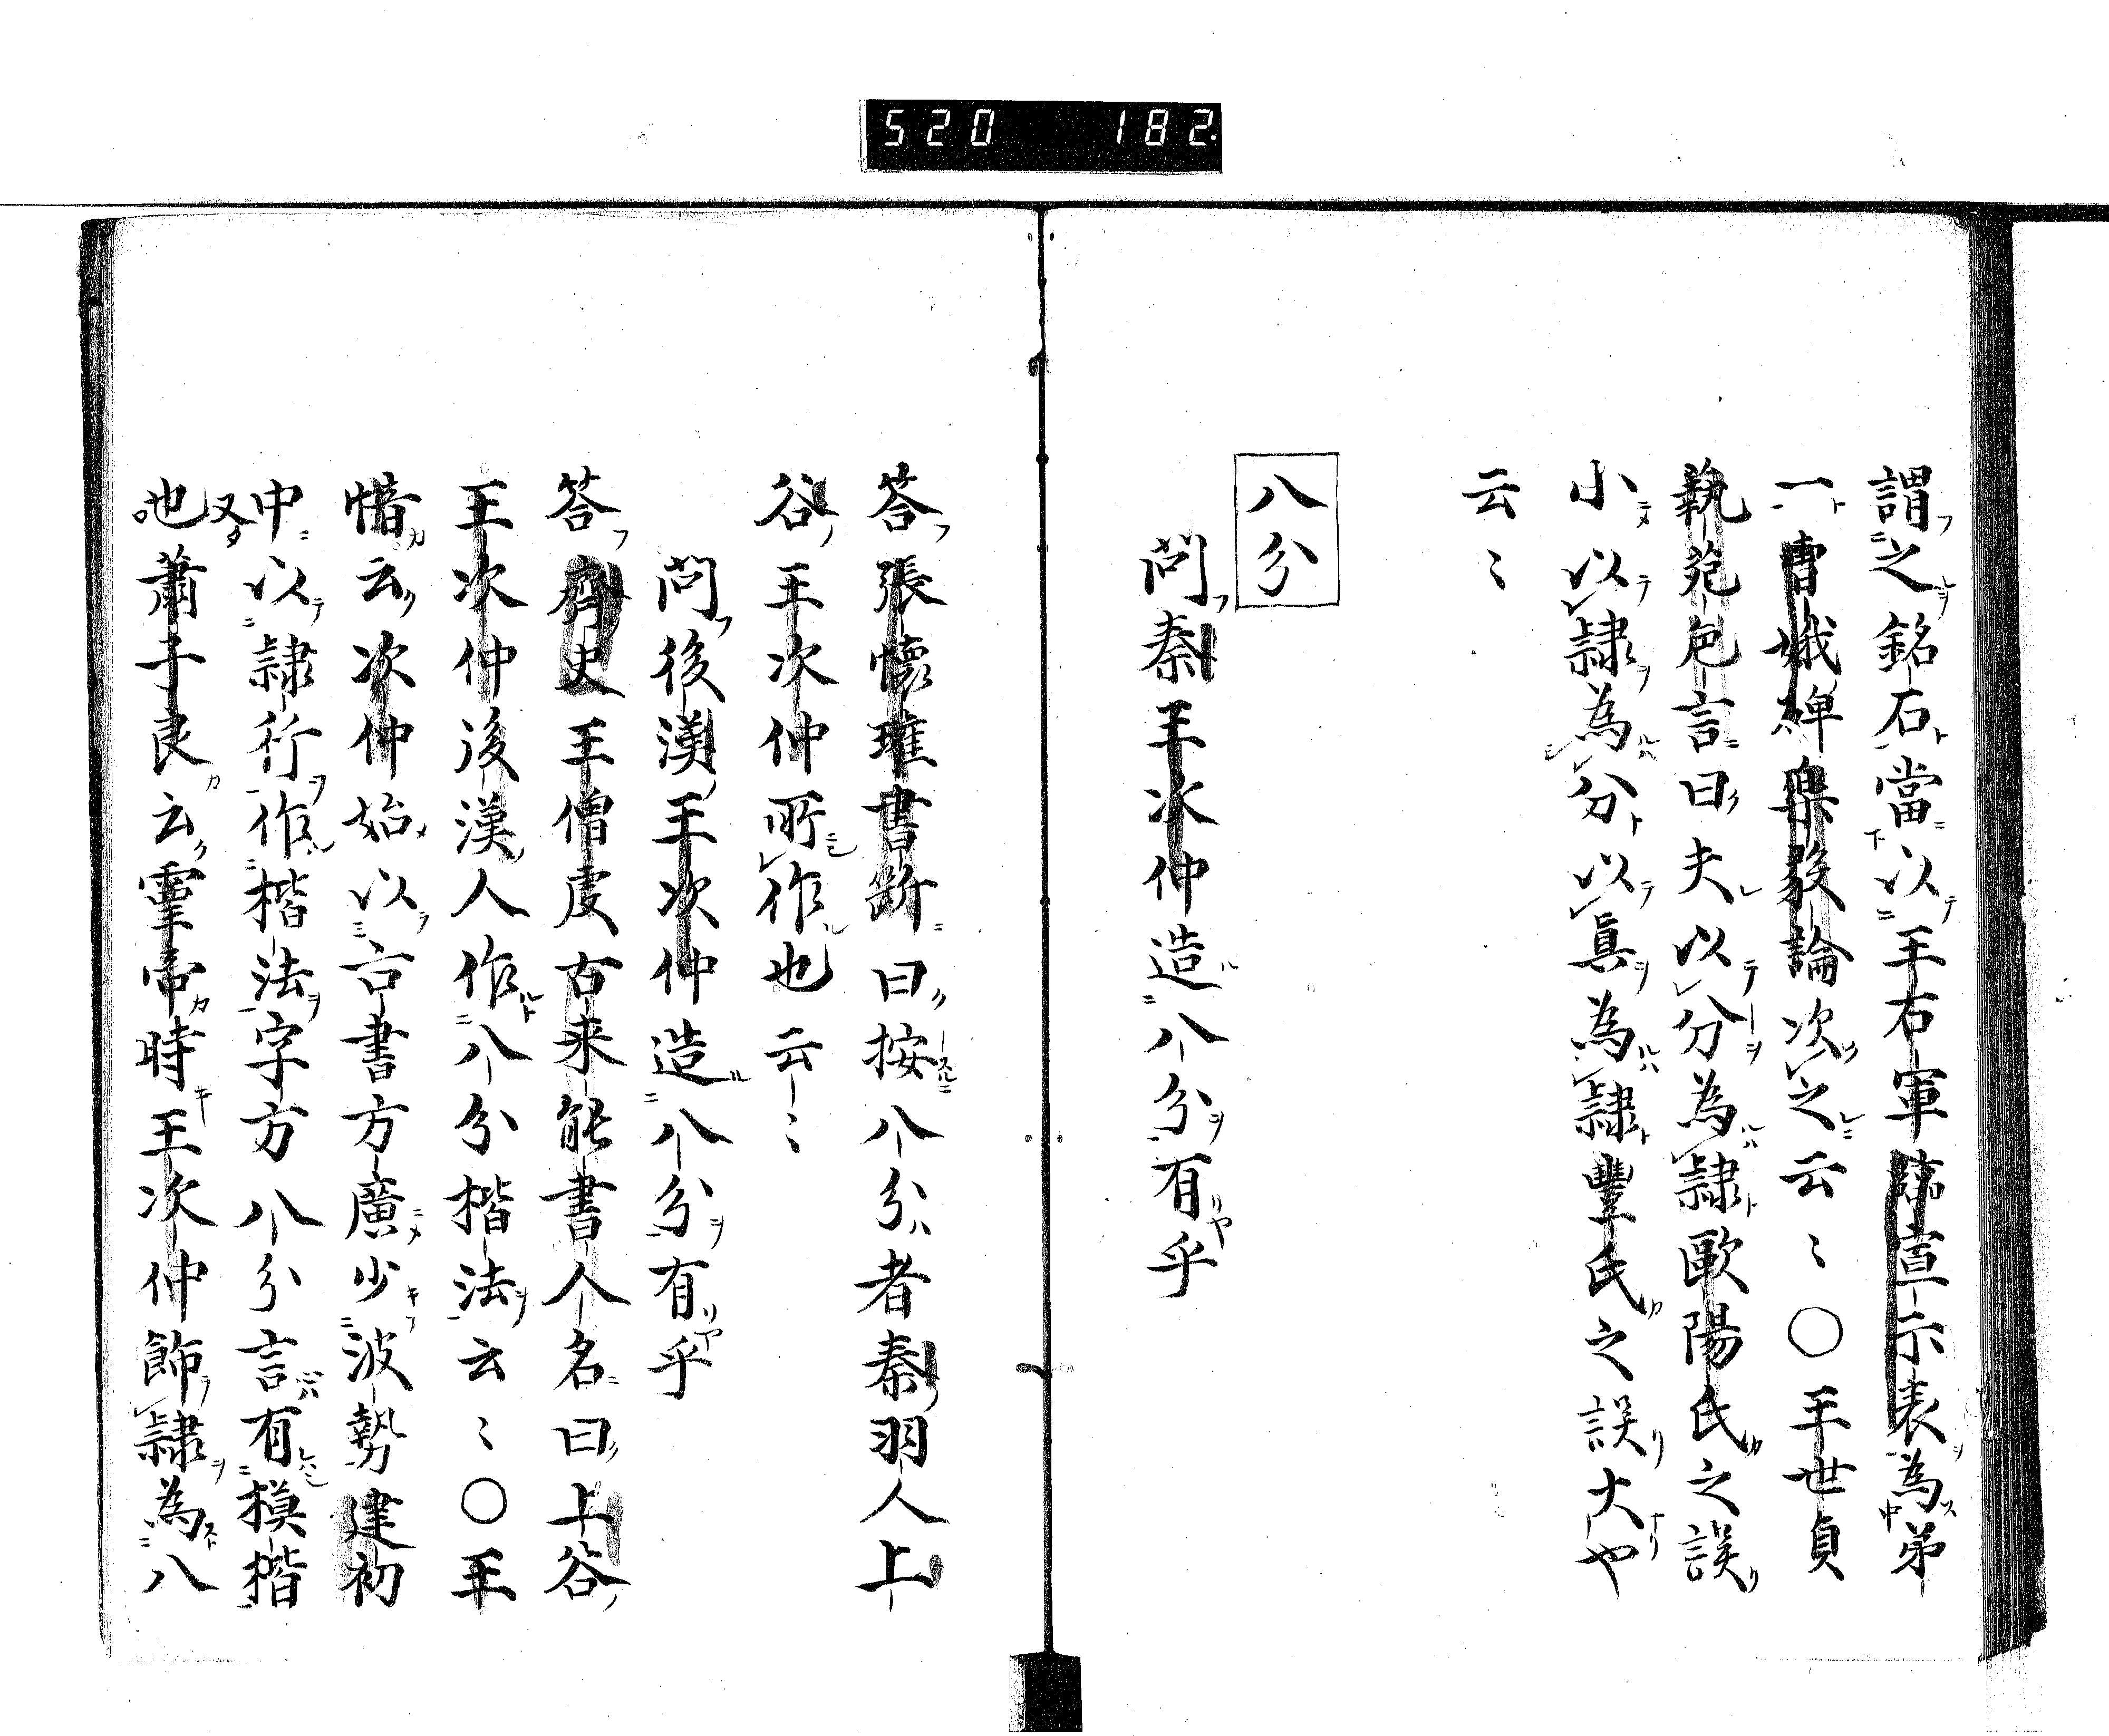 520 182
謂之銘石當以王右軍臨宣示表為第
一曹娥碑樂毅論次之云〻○王世貞
執苑巵言曰夫以分為隷歐陽氏之誤
小以隷為分以眞為隷豐氏之誤大や
云〻
八分
問秦王次仲造八分有乎
答張懷瓘書斷曰按八分者秦羽人上
谷王次仲所作也云〻
問後漢王次仲造八分有乎
答齊史王僧虔古来能書人名曰上谷
王次仲後漢人作八分楷法云〻○王
愔云次仲始以古書方廣少波勢建初
中以隷行作楷法字方八分言有模楷
也又蕭子良云靈帝時王次仲飾隷為八